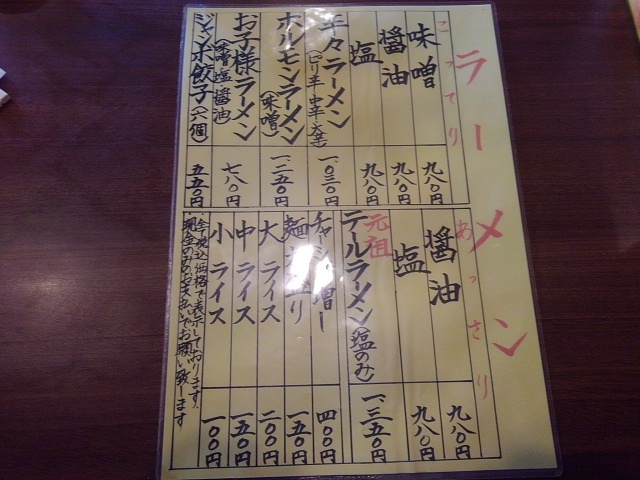 ラーメン
こってり
味噌
九八〇円
醤油
九八〇円
塩
九八〇円
辛々ラーメン
一、〇三〇円
ホルモンラーメン
(味噌)
一、二五〇円
お子様ラーメン
(味噌 塩 醤油)
七八〇円
ジャンボ餃子(六個)
五五〇円
あっさり
醤油
九八〇円
塩
九八〇円
元祖
テールラーメン(塩のみ)
一、三五〇円
チャーシュー増し
四〇〇円
麺大盛り
一五〇円
大ライス
二〇〇円
中ライス
一五〇円
小ライス
一〇〇円
全て税込価格で表示しております。
現金のみのお支払いでお願い致します